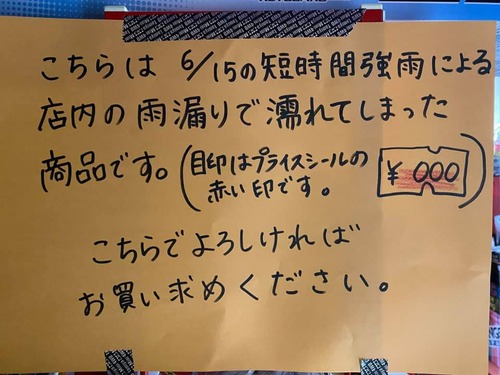 こちらは 6/15の短時間強雨による
店内の雨漏りで濡れてしまった
商品です。(目印はプライスシールの
赤い印です。
¥ 000)
こちらでよろしければ
お買い求めください。